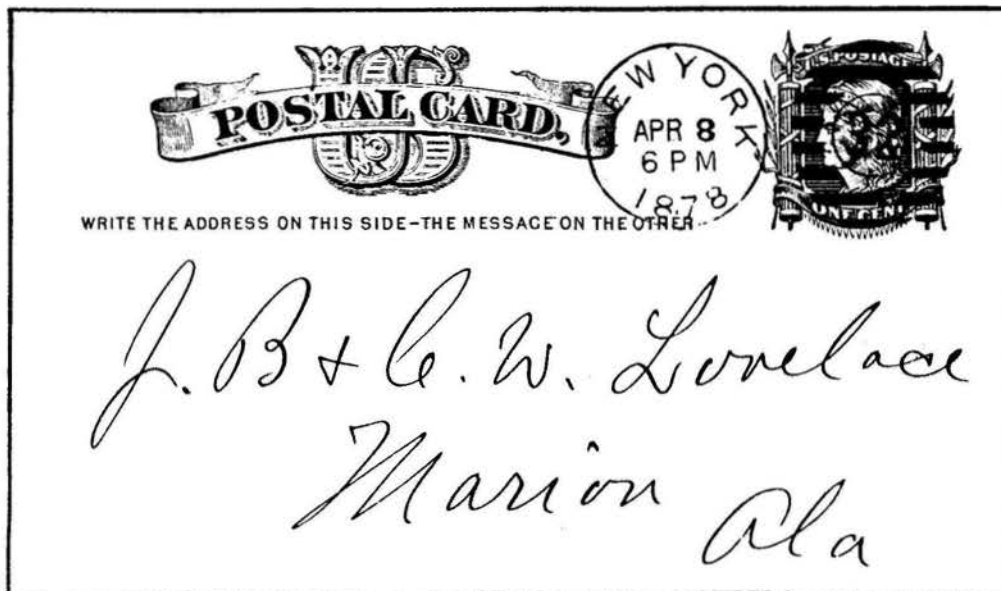 US
POSTAL CARD,
NEW YORK
APR 8
6 PM
1878
U.S. POSTAGE
ONE CENT
WRITE THE ADDRESS ON THIS SIDE-THE MESSAGE ON THE OTHER
J. B & C. W. Lovelace
Marion
Ala